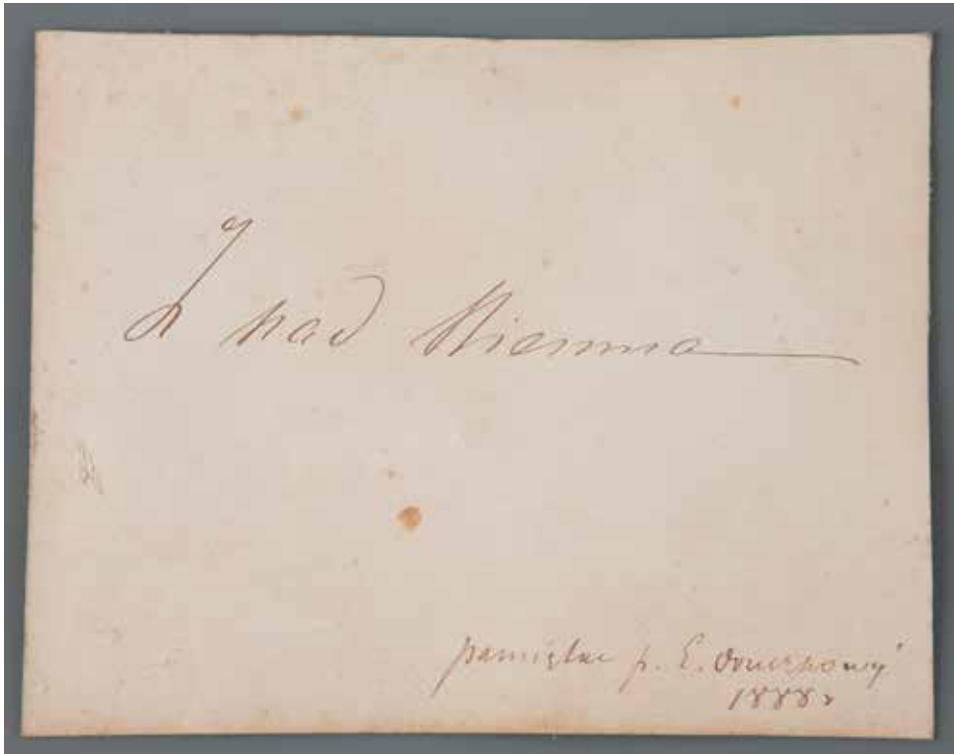 Z nad Niemna
pamiątka p. E. Orzeszkowéj
1888 r